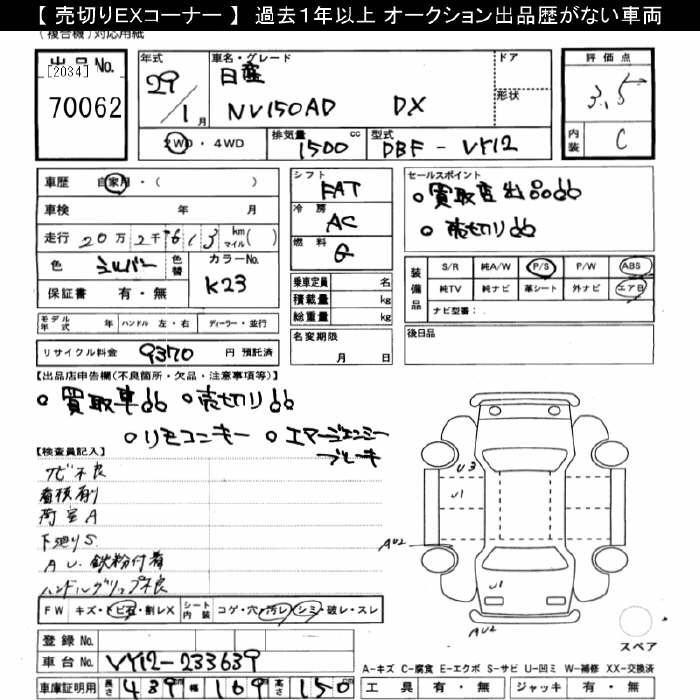 【 売切りEXコーナー 】 過去１年以上 オークション出品歴がない車両
(複合機)対応用紙
出品No.
[2034]
70062
年式
29
1月
車名・グレード
日産
NV150AD DX
ドア
形状
評価点
3.5
内装
C
2WD・4WD
排気量
1500 cc
型式
DBF - VY12
車歴 自家用・( )
車検 年 月
走行 20万2千613 km マイル( )
色 シルバー 色替
カラーNo.
K23
保証書 有・無
モデル年式 年 ハンドル 左・右 ディーラー・並行
リサイクル料金 9370 円 預託済
シフト
FAT
冷房
AC
燃料
G
乗車定員 名
積載量 kg
総重量 kg
名変期限
月 日
セールスポイント
買取車出品
売切り
装備品
S/R 純A/W P/S P/W ABS
純TV 純ナビ 革シート 外ナビ エアB
ナビ型番：
後日品
【出品店申告欄(不良箇所・欠品・注意事項等)】
買取車 売切り
リモコンキー エマージェンシーブレーキ
【検査員記入】
荷室A
下廻りS
AU. 鉄粉付着
ハンドルグリップ不良
U3
U1
AU2
U1
AU2
FW キズ・トビ石・割レX シート内装 コゲ・穴・汚レ・シミ・破レ・スレ
登録No.
車台No. VY12-233639
車庫証明用 長さ 439 幅 169 高さ 150 cm
スペア
A-キズ C-腐食 E-エクボ S-サビ U-凹ミ W-補修 XX-交換済
工具 有・無 ジャッキ 有・無